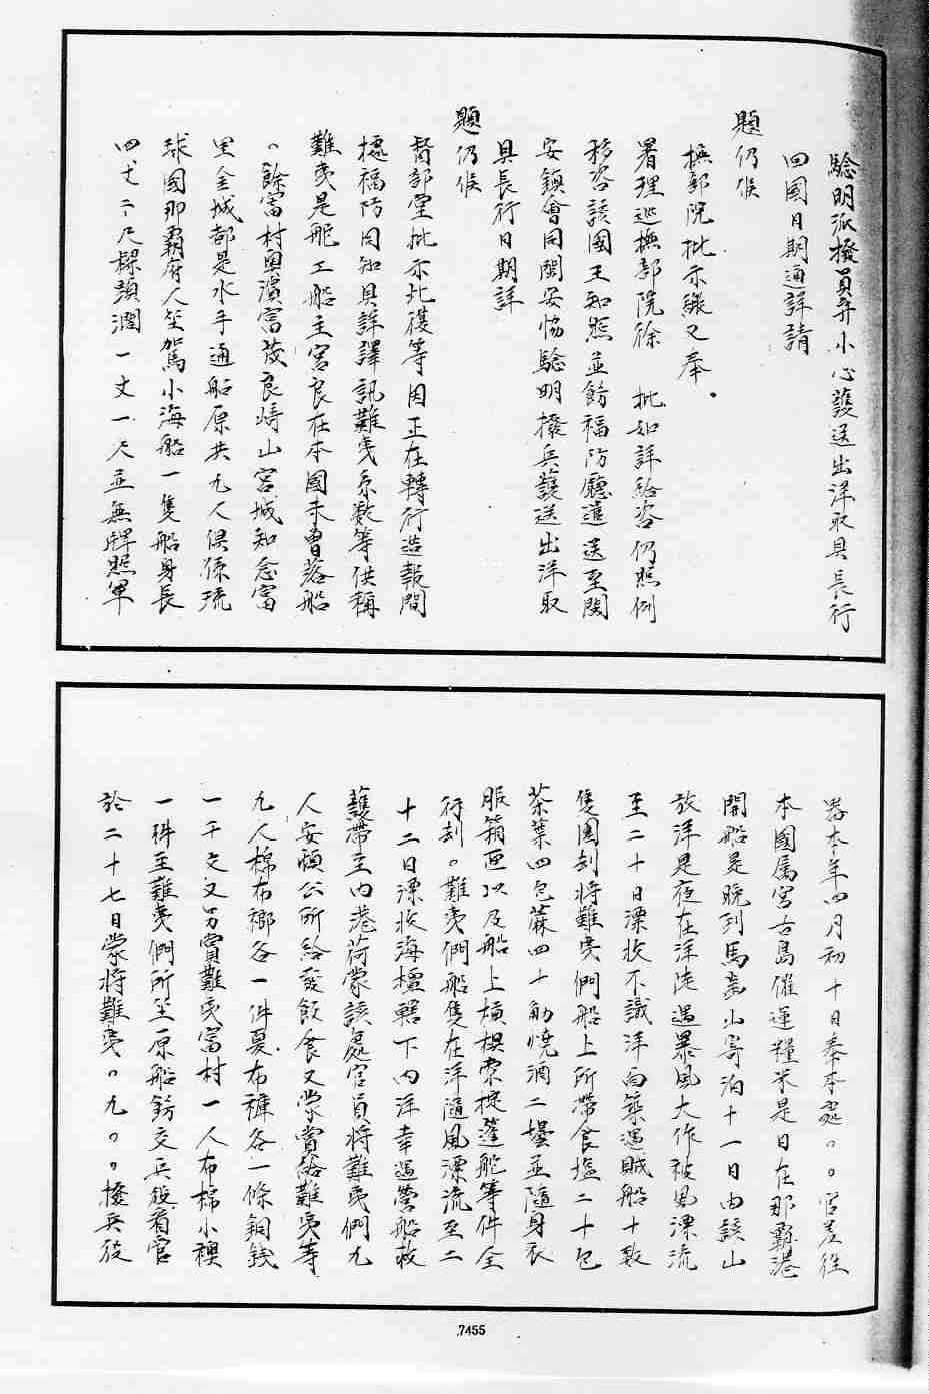 驗明派撥員弁小心護送出洋取具長行
回國日期通詳請
題仍候
撫部院批示繳又奉
署理巡撫部院徐 批如詳給咨仍照例
移咨該國王知照並飭福防廳遣送至閩
安鎮會同閩安協驗明撥兵護送出洋取
具長行日期詳
題仍候
督部堂批示此復等因正在轉行造報間
據福防同知具詳譯訊難夷系數等供稱
難夷是舵工船主宮良在本國未曾落船
。餘富村與濱富茂良嵨山宮城知念富
里金城都是水手通船原共九人俱係琉
球國那霸府人坐駕小海船一隻船身長
四丈二尺樑頭濶一丈一尺並無牌照軍
器本年四月初十日奉本處。。官差往
本國属宮古島催運糧米是日在那霸港
開船是晚到馬齒山寄泊十一日由該山
放洋是夜在洋陡遇暴風大作被風漂流
至二十日漂收不識洋面築遇賊船十数
隻圍刦將難夷們船上所帶食塩二十包
茶葉四包蔴四十觔燒酒二罈並隨身衣
服箱匣以及船上槓椇索掟篷舵等件全
行刦。難夷們船隻在洋隨風漂流至二
十二日漂收海壇轄下内洋幸遇營船救
護帶至内港荷蒙該處官員將難夷們九
人安頓公所給發飯食又蒙賞給難夷等
九人棉布襖各一件夏布褲各一條銅錢
一千文又另賞難夷富村一人布棉小襖
一件至難夷們所坐原船飭交兵役看管
於二十七日蒙將難夷。九。。撥兵役
7455